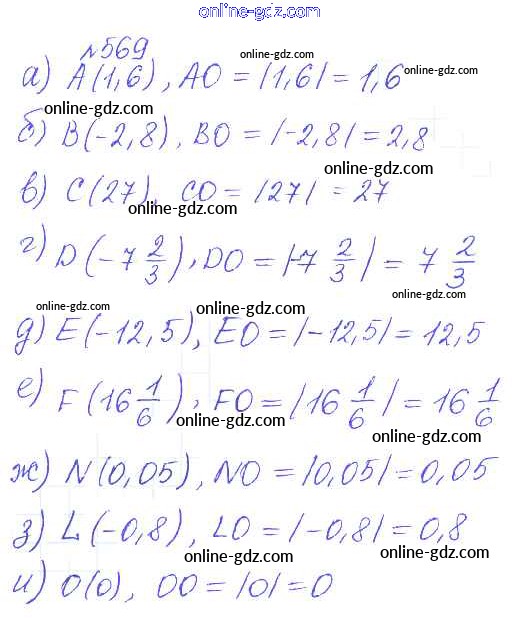 online-gdz.com
№569
online-gdz.com
а) A(1,6), AO = |1,6| = 1,6 online-gdz.com
online-gdz.com
б) B(-2,8), BO = |-2,8| = 2,8
online-gdz.com
в) C(27), CO = |27| = 27
online-gdz.com
г) D(-7 2/3), DO = |-7 2/3| = 7 2/3
online-gdz.com
online-gdz.com online-gdz.com
д) E(-12,5), EO = |-12,5| = 12,5
е) F(16 1/6), FO = |16 1/6| = 16 1/6
online-gdz.com
online-gdz.com
ж) N(0,05), NO = |0,05| = 0,05
online-gdz.com
з) L(-0,8), LO = |-0,8| = 0,8
online-gdz.com online-gdz.com
и) O(0), OO = |0| = 0
online-gdz.com